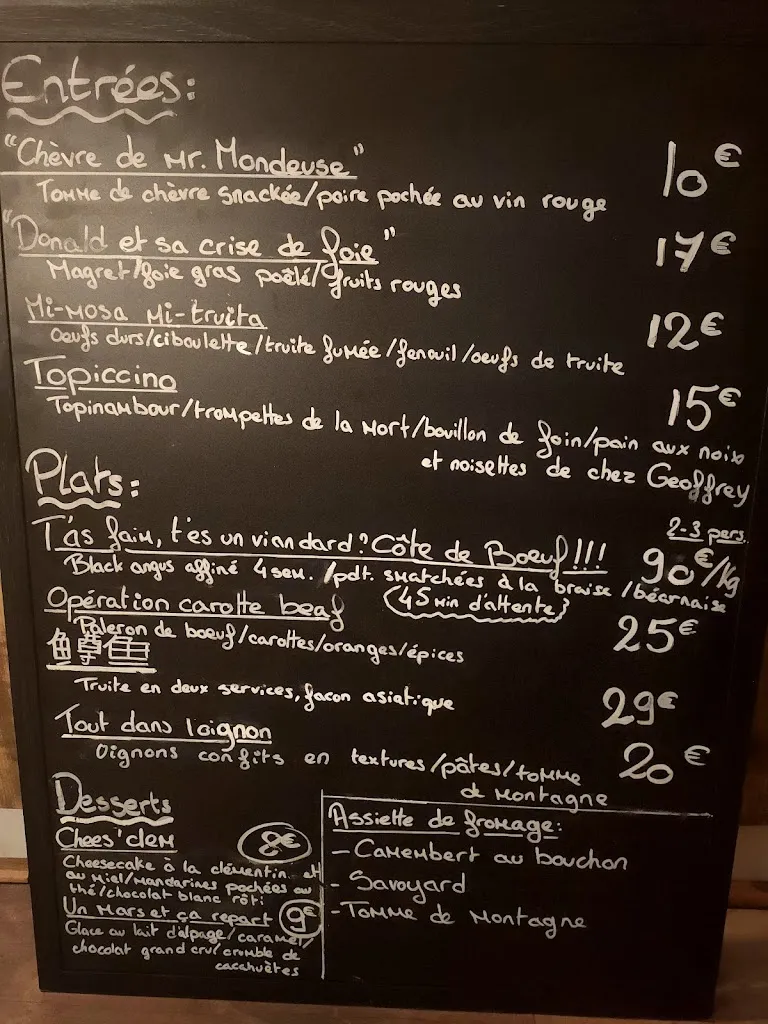 Entrées:
"Chèvre de Mr. Mondeuse" 10€
Tomme de chèvre snackée/poire pochée au vin rouge
"Donald et sa crise de foie" 17€
Magret/foie gras poêlé/fruits rouges
Mi-mosa Mi-truita 12€
Oeufs durs/ciboulette/truite fumée/fenouil/oeufs de truite
Topiccino 15€
Topinambour/trompettes de la mort/bouillon de foin/pain aux noix
et noisettes de chez Geoffrey
Plats:
2-3 pers.
T'as faim, t'es un viandard? Côte de Boeuf!!! 90€/kg
Black angus affiné 4 sem. /pdt. smatchées à la braise/béarnaise
(45 min d'attente)
Opération carotte beaf 25€
Paleron de boeuf/carottes/oranges/épices
鳟鱼
Truite en deux services, façon asiatique 29€
Tout dans l'oignon 20€
Oignons confits en textures/pâtes/tomme
de montagne
Desserts
Chees'clem 8€
Cheesecake à la clémentine et
au miel/mandarines pochées au
thé/chocolat blanc rôti
Un Mars et ça repart 9€
Glace au lait d'alpage/caramel/
chocolat grand cru/crumble de
cacahuètes
Assiette de fromage:
- Camembert au bouchon
- Savoyard
- Tomme de Montagne